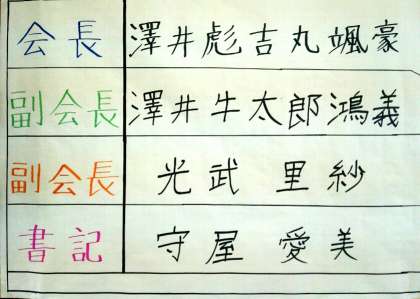 会長 澤井彪吉丸颯豪
副会長 澤井牛太郎鴻義
副会長 光武 里紗
書記 守屋 愛美